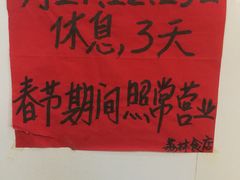 休息,3天
春节期间照常营业
森林食店